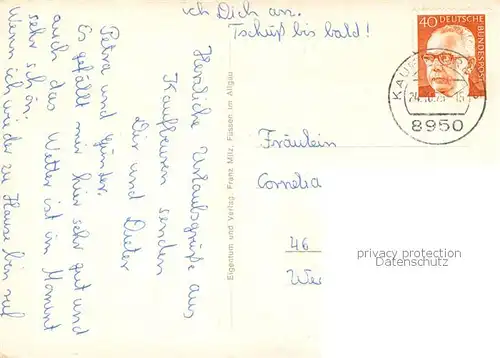 Herzliche Urlaubsgrüße aus
Kaufbeuren senden
Dir und Dieter
Petra und Günter.
Es gefällt mir hier sehr gut und
auch das Wetter ist im Moment
sehr schön.
Wenn ich wieder zu Hause bin ruf
ich Dich an.
Tschüß bis bald!
Eigentum und Verlag: Franz Milz, Füssen im Allgäu
40 DEUTSCHE BUNDESPOST
8950
Fräulein
Cornelia
46
privacy protection
Datenschutz